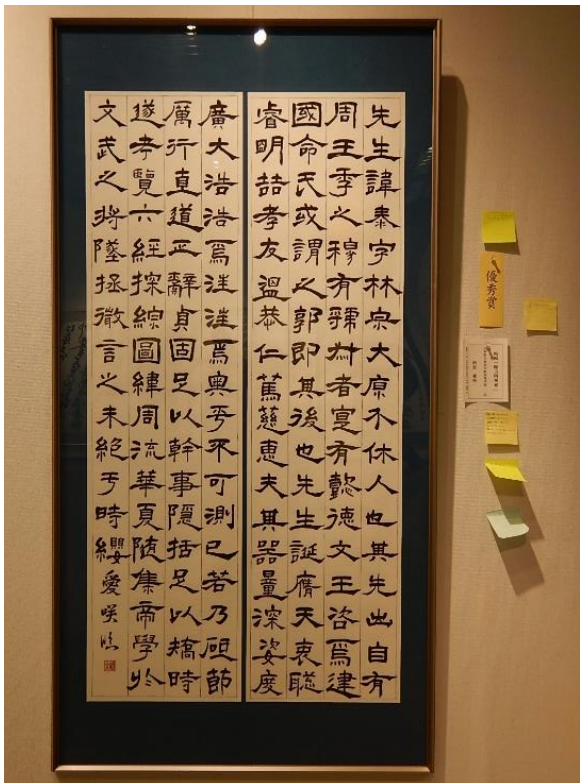 先生諱泰字林宗大原介休人也其先出自有
周王季之穆有虢叔者寔有懿德文王咨焉建
國命氏或謂之郭即其後也先生誕膺天衷聰
睿明喆孝友溫恭仁篤慈惠夫其器量深姿度
廣大浩浩焉汪汪焉奧乎不可測已若乃砥節
厲行直道正辭貞固足以幹事隱括足以矯時
遂考覽六經探綜圖緯周流華夏隨集帝學收
文武之將墜拯微言之未絕于時纓愛咲臨
優秀賞